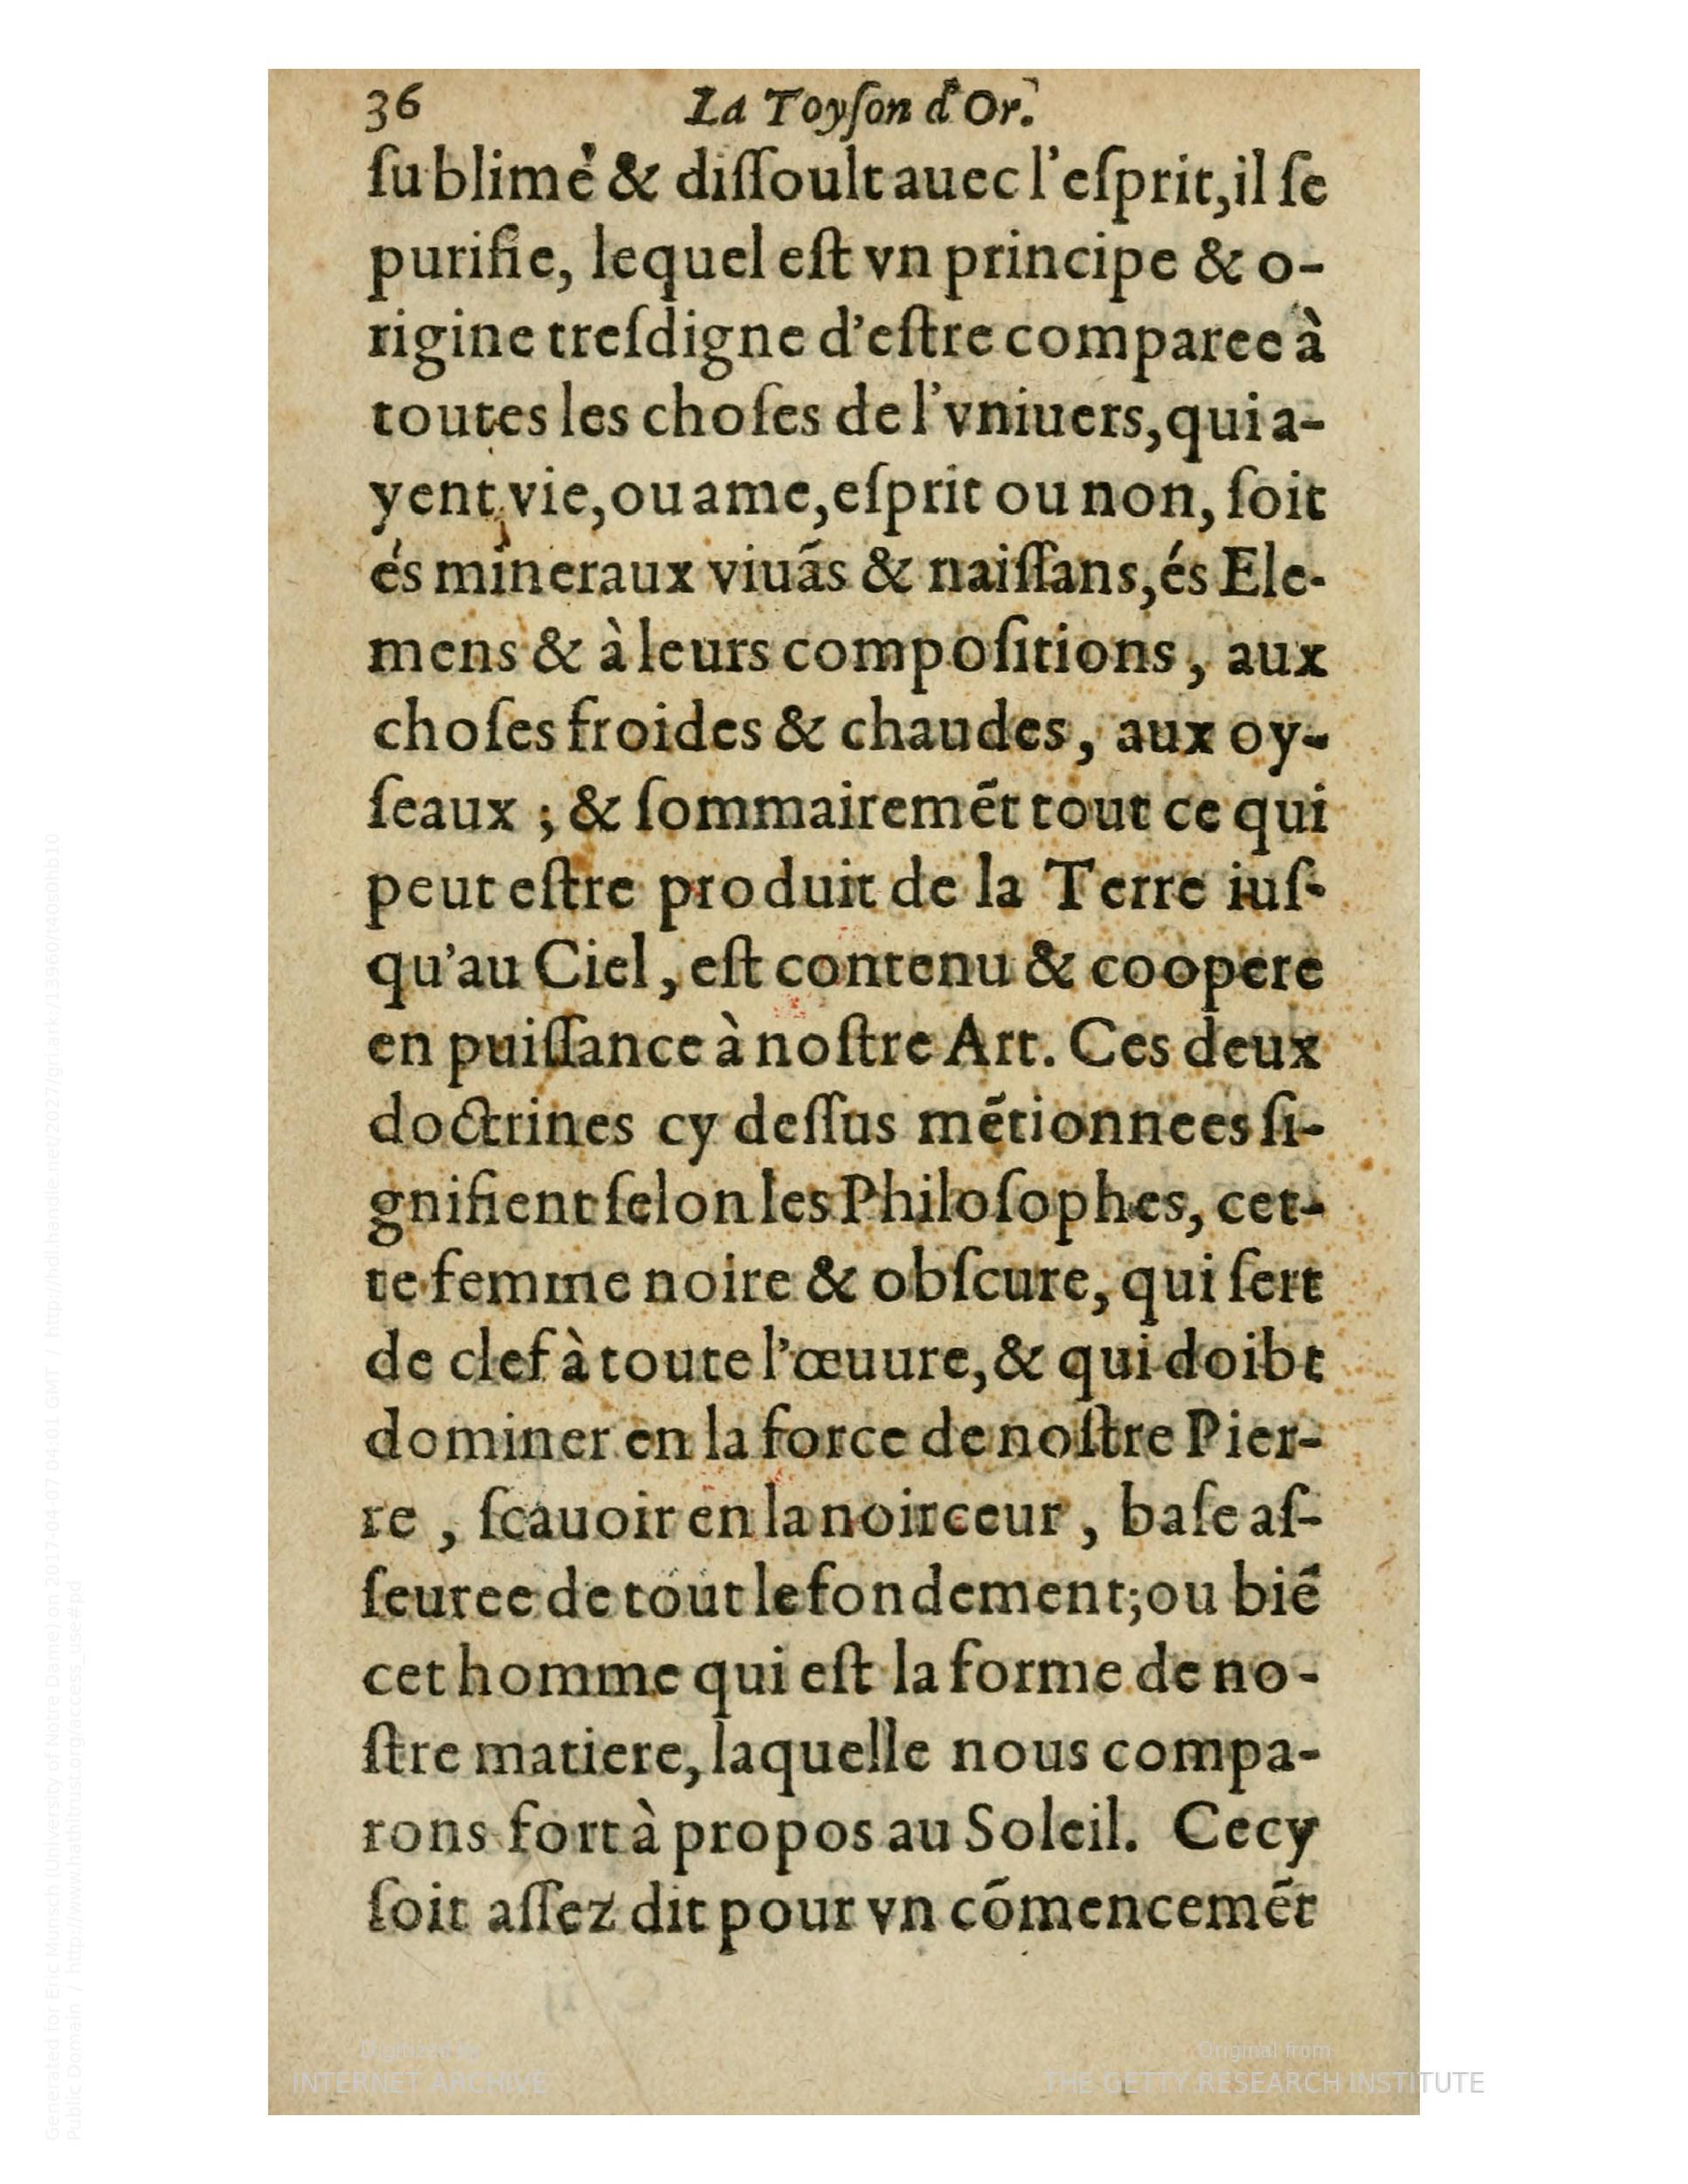 36 La Toyſon d'Or.
ſublimé & diſſoult auec l'eſprit, il ſe
purifie, lequel eſt vn principe & o-
rigine treſdigne d'eſtre comparee à
toutes les choſes de l'vniuers, qui a-
yent vie, ou ame, eſprit ou non, ſoit
és mineraux viuãs & naiſſans, és Ele-
mens & à leurs compoſitions, aux
choſes froides & chaudes, aux oy-
ſeaux ; & ſommairemẽt tout ce qui
peut eſtre produit de la Terre iuſ-
qu'au Ciel, eſt contenu & coopere
en puiſſance à noſtre Art. Ces deux
doctrines cy deſſus mẽtionnees ſi-
gnifient ſelon les Philoſophes, cet-
te femme noire & obſcure, qui ſert
de clef à toute l'œuure, & qui doibt
dominer en la force de noſtre Pier-
re, ſcauoir en la noirceur, baſe aſ-
ſeuree de tout le fondement; ou biẽ
cet homme qui eſt la forme de no-
ſtre matiere, laquelle nous compa-
rons fort à propos au Soleil. Cecy
ſoit aſſez dit pour vn cõmencemẽt
Digitized by
INTERNET ARCHIVE
Original from
THE GETTY RESEARCH INSTITUTE
Generated for Eric Munsch (University of Notre Dame) on 2017-04-07 04:01 GMT / http://hdl.handle.net/2027/gri.ark:/13960/t40s0hb10
Public Domain / http://www.hathitrust.org/access_use#pd